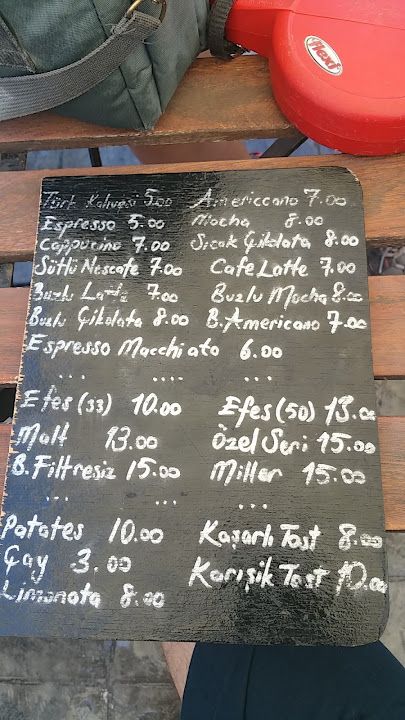 flexi
Türk Kahvesi 5.00 Americcano 7.00
Espresso 5.00 Mocha 8.00
Cappucino 7.00 Sıcak Çikolata 8.00
Sütlü Nescafe 7.00 Cafe Latte 7.00
Buzlu Latte 7.00 Buzlu Mocha 8.00
Buzlu Çikolata 8.00 B. Americano 7.00
Espresso Macchiato 6.00
... .... ...
Efes (33) 10.00 Efes (50) 13.00
Malt 13.00 Özel Seri 15.00
B. Filtresiz 15.00 Miller 15.00
... ... ...
Patates 10.00 Kaşarlı Tost 8.00
Çay 3.00 Karışık Tost 10.00
Limonata 8.00